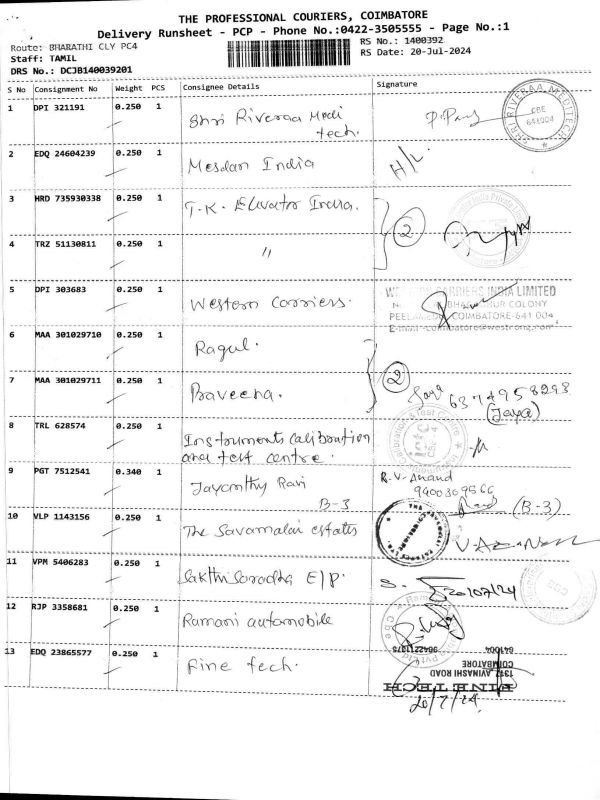 THE PROFESSIONAL COURIERS, COIMBATORE
Delivery Runsheet - PCP - Phone No.:0422-3505555 - Page No.:1
Route: BHARATHI CLY PC4
RS No.: 1400392
Staff: TAMIL
RS Date: 20-Jul-2024
DRS No.: DCJB140039201
S No Consignment No Weight PCS Consignee Details Signature
1 DPI 321191 0.250 1 Shri Riveraa Medi
tech.
SHRI RIVERAA MEDITECH
CBE
641004
2 EDQ 24604239 0.250 1 Mesdan India H/L.
3 HRD 735930338 0.250 1 T.K. Elivator India. 2
4 TRZ 51130811 0.250 1 "
5 DPI 303683 0.250 1 Western Carriers.
WESTERN CARRIERS INDIA LIMITED
COLONY
COIMBATORE-641 004
6 MAA 301029710 0.250 1 Ragul. 2
7 MAA 301029711 0.250 1 Praveena. Jaya 6374958293
(Jaya)
8 TRL 628574 0.250 1 Instruments calibration
and test centre.
9 PGT 7512541 0.340 1 Jayanthy Ravi
B-3
R.V. Anand
(B-3)
10 VLP 1143156 0.250 1 The Savamalai estates
11 VPM 5406283 0.250 1 Sakthi Saradha E/P. S. 20/07/24
12 RJP 3358681 0.250 1 Ramani automobile
13 EDQ 23865577 0.250 1 Fine tech.
FINE TECH
AVINASHI ROAD
COIMBATORE
641004
20/7/24